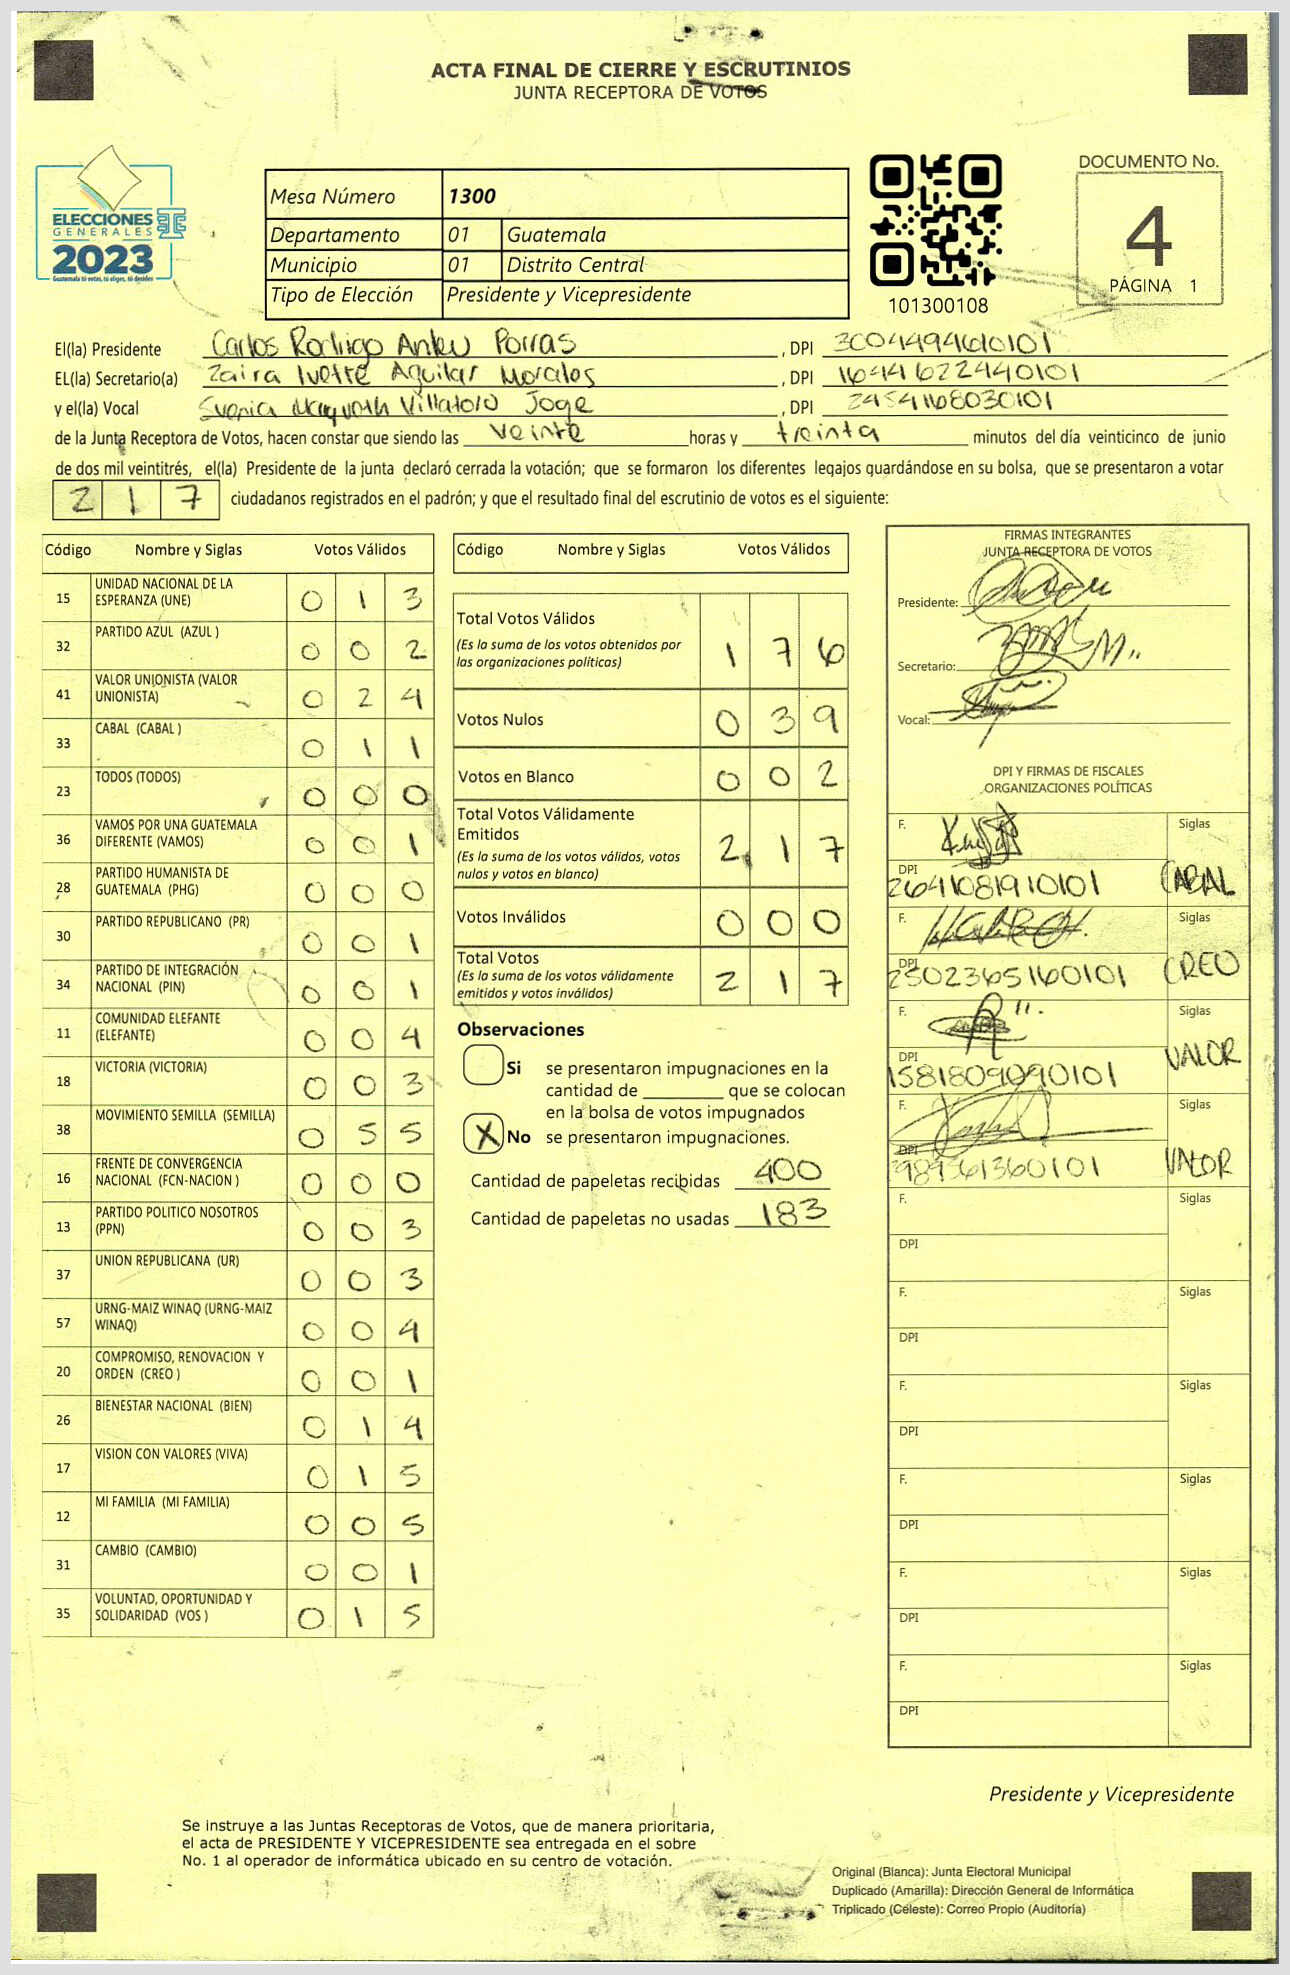 ACTA FINAL DE CIERRE Y ESCRUTINIOS
JUNTA RECEPTORA DE VOTOS
ELECCIONES
GENERALES
2023
Guatemala tú votas, tú eliges, tú decides
Mesa Número 1300
Departamento 01 Guatemala
Municipio 01 Distrito Central
Tipo de Elección Presidente y Vicepresidente
101300108
DOCUMENTO No.
4
PÁGINA 1
El(la) Presidente Carlos Rodrigo Anleu Porras , DPI 3004494610101
EL(la) Secretario(a) Zaira Ivette Aguilar Morales , DPI 1644622440101
y el(la) Vocal Villatoro Joge , DPI 2454168030101
de la Junta Receptora de Votos, hacen constar que siendo las veinte horas y treinta minutos del día veinticinco de junio
de dos mil veintitrés, el(la) Presidente de la junta declaró cerrada la votación; que se formaron los diferentes legajos guardándose en su bolsa, que se presentaron a votar
2 1 7 ciudadanos registrados en el padrón; y que el resultado final del escrutinio de votos es el siguiente:
Código Nombre y Siglas Votos Válidos
15 UNIDAD NACIONAL DE LA ESPERANZA (UNE) 0 1 3
32 PARTIDO AZUL (AZUL ) 0 0 2
41 VALOR UNIONISTA (VALOR UNIONISTA) 0 2 4
33 CABAL (CABAL ) 0 1 1
23 TODOS (TODOS) 0 0 0
36 VAMOS POR UNA GUATEMALA DIFERENTE (VAMOS) 0 0 1
28 PARTIDO HUMANISTA DE GUATEMALA (PHG) 0 0 0
30 PARTIDO REPUBLICANO (PR) 0 0 1
34 PARTIDO DE INTEGRACIÓN NACIONAL (PIN) 0 0 1
11 COMUNIDAD ELEFANTE (ELEFANTE) 0 0 4
18 VICTORIA (VICTORIA) 0 0 3
38 MOVIMIENTO SEMILLA (SEMILLA) 0 5 5
16 FRENTE DE CONVERGENCIA NACIONAL (FCN-NACION ) 0 0 0
13 PARTIDO POLITICO NOSOTROS (PPN) 0 0 3
37 UNION REPUBLICANA (UR) 0 0 3
57 URNG-MAIZ WINAQ (URNG-MAIZ WINAQ) 0 0 4
20 COMPROMISO, RENOVACION Y ORDEN (CREO ) 0 0 1
26 BIENESTAR NACIONAL (BIEN) 0 1 4
17 VISION CON VALORES (VIVA) 0 1 5
12 MI FAMILIA (MI FAMILIA) 0 0 5
31 CAMBIO (CAMBIO) 0 0 1
35 VOLUNTAD, OPORTUNIDAD Y SOLIDARIDAD (VOS ) 0 1 5
Código Nombre y Siglas Votos Válidos
Total Votos Válidos
(Es la suma de los votos obtenidos por las organizaciones políticas) 1 7 6
Votos Nulos 0 3 9
Votos en Blanco 0 0 2
Total Votos Válidamente Emitidos
(Es la suma de los votos válidos, votos nulos y votos en blanco) 2 1 7
Votos Inválidos 0 0 0
Total Votos
(Es la suma de los votos válidamente emitidos y votos inválidos) 2 1 7
Observaciones
Si se presentaron impugnaciones en la
cantidad de ________ que se colocan
en la bolsa de votos impugnados
X No se presentaron impugnaciones.
Cantidad de papeletas recibidas 400
Cantidad de papeletas no usadas 183
FIRMAS INTEGRANTES
JUNTA RECEPTORA DE VOTOS
Presidente:
Secretario:
Vocal:
DPI Y FIRMAS DE FISCALES
ORGANIZACIONES POLÍTICAS
F. Siglas
DPI 2641081910101 CABAL
F. Siglas
DPI 2502365160101 CREO
F. Siglas
DPI 1581809090101 VALOR
F. Siglas
DPI VALOR
F. Siglas
DPI
F. Siglas
DPI
F. Siglas
DPI
F. Siglas
DPI
F. Siglas
DPI
F. Siglas
DPI
Presidente y Vicepresidente
Se instruye a las Juntas Receptoras de Votos, que de manera prioritaria,
el acta de PRESIDENTE Y VICEPRESIDENTE sea entregada en el sobre
No. 1 al operador de informática ubicado en su centro de votación.
Original (Blanca): Junta Electoral Municipal
Duplicado (Amarilla): Dirección General de Informática
Triplicado (Celeste): Correo Propio (Auditoría)